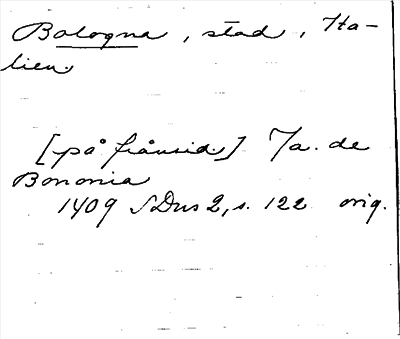 Bologna, stad, Ita-
lien.
[på frånsid.] Ja. de
Bononia
1409 SDns 2, s. 122 orig.